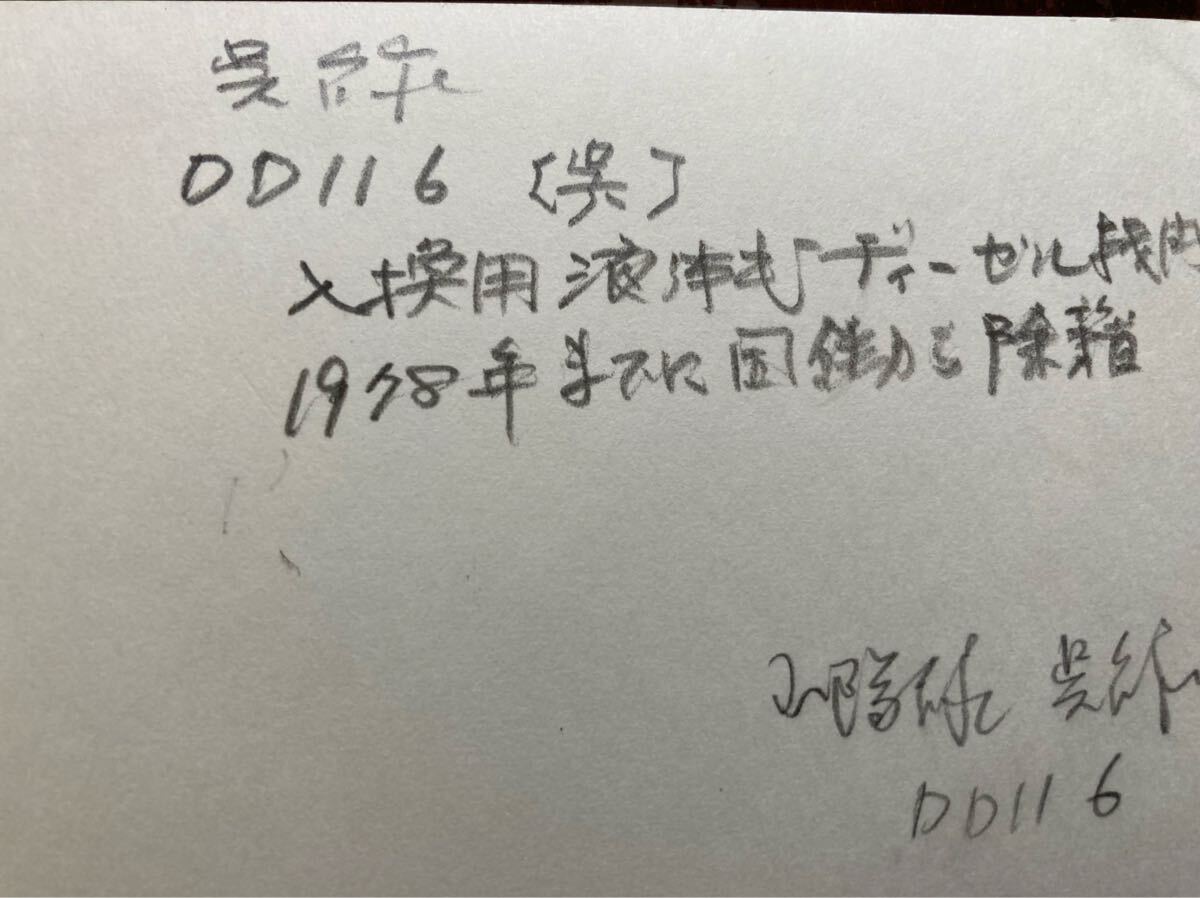 呉線
DD11 6 〔呉〕
入換用液体式ディーゼル機関
1978年までに国鉄から除籍
山陽線 呉線
DD11 6